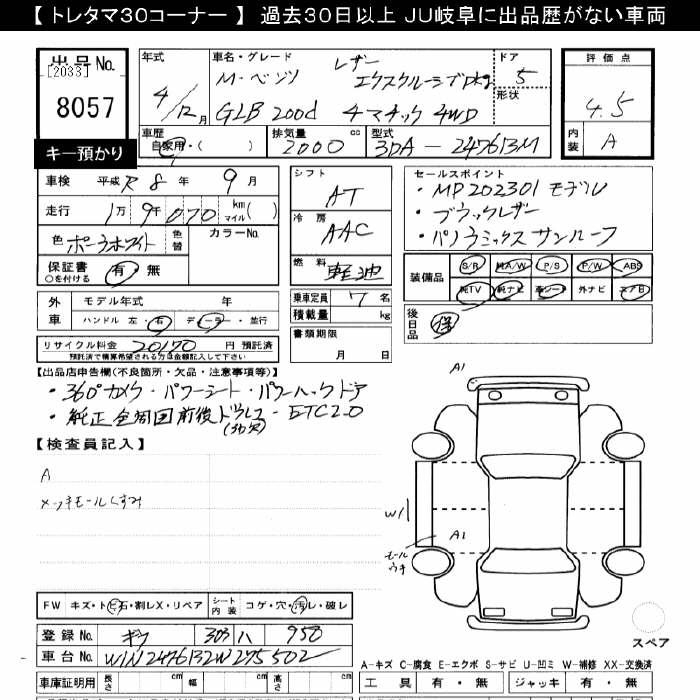 【 トレタマ30コーナー 】 過去30日以上 JU岐阜に出品歴がない車両
出品No.
[2033]
8057
キー預かり
年式 車名・グレード ドア 評価点
M・ベンツ レザーエクスクルーシブpkg 5
4/12月 GLB 200d 4マチック 4WD 形状 4.5
車歴 自家用・( ) 排気量 2000 cc 型式 3DA-247613M 内装 A
車検 平成 R8年 9月
走行 1万9千070 km マイル( )
色 ポーラホワイト 色替 カラーNo.
保証書 有・無
○を付ける
シフト AT
冷房 AAC
燃料 軽油
乗車定員 7名
積載量 kg
書類期限
月 日
セールスポイント
・MP202301モデル
・ブラックレザー
・パノラミックスサンルーフ
装備品 S/R AA/W P/S P/W ABS
純TV 純ナビ 革シート 外ナビ エアB
後日品 保
外車 モデル年式 年
ハンドル 左・右 ディーラー・並行
リサイクル料金 20170 円 預託済
預託済で精算希望される方は金額記入して下さい
【出品店申告欄(不良箇所・欠品・注意事項等)】
・360°カメラ・パワーシート・パワーバックドア
・純正全周囲前後ドラレコ・ETC2.0
【検査員記入】
A
メッキモールくすみ
A1
W1
A1
モールウキ
FW キズ・トビ石・割レX・リペア シート内装 コゲ・穴・汚レ・破レ
登録No. ギフ 303 ハ 950
車台No. W1N2476132W275502
スペア
A-キズ C-腐食 E-エクボ S-サビ U-凹ミ W-補修 XX-交換済
車庫証明用 長さ cm 幅 cm 高さ cm
工具 有・無 ジャッキ 有・無